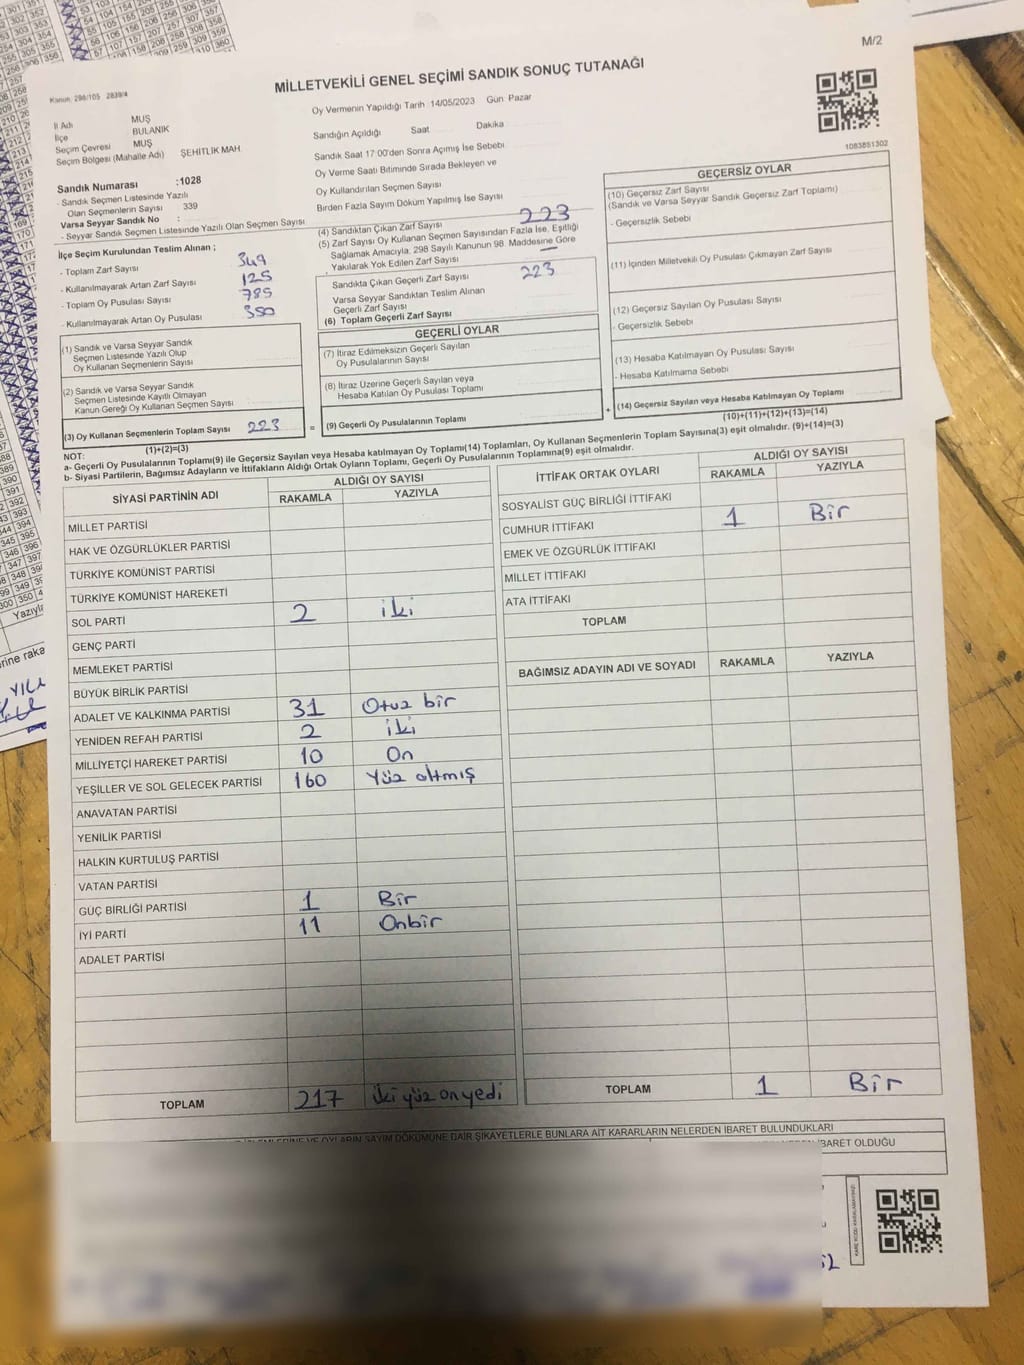 M/2
MİLLETVEKİLİ GENEL SEÇİMİ SANDIK SONUÇ TUTANAĞI
Kanun: 298/105 2839/4
İl Adı MUŞ
İlçe BULANIK
Seçim Çevresi MUŞ
Seçim Bölgesi (Mahalle Adı) ŞEHİTLİK MAH
Sandık Numarası :1028
- Sandık Seçmen Listesinde Yazılı
Olan Seçmenlerin Sayısı : 339
Varsa Seyyar Sandık No :
- Seyyar Sandık Seçmen Listesinde Yazılı Olan Seçmen Sayısı
Oy Vermenin Yapıldığı Tarih 14/05/2023 Gün Pazar
Sandığın Açıldığı Saat Dakika
Sandık Saat 17:00'den Sonra Açımış İse Sebebi
Oy Verme Saati Bitiminde Sırada Bekleyen ve
Oy Kullandırılan Seçmen Sayısı
Birden Fazla Sayım Döküm Yapılmış İse Sayısı
1083851302
İlçe Seçim Kurulundan Teslim Alınan ;
- Toplam Zarf Sayısı 349
- Kullanılmayarak Artan Zarf Sayısı 125
- Toplam Oy Pusulası Sayısı 785
- Kullanılmayarak Artan Oy Pusulası 350
(1) Sandık ve Varsa Seyyar Sandık
Seçmen Listesinde Yazılı Olup
Oy Kullanan Seçmenlerin Sayısı
(2) Sandık ve Varsa Seyyar Sandık
Seçmen Listesinde Kayıtlı Olmayan
Kanun Gereği Oy Kullanan Seçmen Sayısı
(3) Oy Kullanan Seçmenlerin Toplam Sayısı 223
(1)+(2)=(3)
(4) Sandıktan Çıkan Zarf Sayısı 223
(5) Zarf Sayısı Oy Kullanan Seçmen Sayısından Fazla İse, Eşitliği
Sağlamak Amacıyla, 298 Sayılı Kanunun 98. Maddesine Göre
Yakılarak Yok Edilen Zarf Sayısı —
Sandıkta Çıkan Geçerli Zarf Sayısı 223
Varsa Seyyar Sandıktan Teslim Alınan
Geçerli Zarf Sayısı
(6) Toplam Geçerli Zarf Sayısı
GEÇERLİ OYLAR
(7) İtiraz Edilmeksizin Geçerli Sayılan
Oy Pusulalarının Sayısı
(8) İtiraz Üzerine Geçerli Sayılan veya
Hesaba Katılan Oy Pusulası Toplamı
= (9) Geçerli Oy Pusulalarının Toplamı
GEÇERSİZ OYLAR
(10) Geçersiz Zarf Sayısı
(Sandık ve Varsa Seyyar Sandık Geçersiz Zarf Toplamı)
- Geçersizlik Sebebi
(11) İçinden Milletvekili Oy Pusulası Çıkmayan Zarf Sayısı
(12) Geçersiz Sayılan Oy Pusulası Sayısı
- Geçersizlik Sebebi
(13) Hesaba Katılmayan Oy Pusulası Sayısı
- Hesaba Katılmama Sebebi
+ (14) Geçersiz Sayılan veya Hesaba Katılmayan Oy Toplamı
(10)+(11)+(12)+(13)=(14)
NOT:
a- Geçerli Oy Pusulalarının Toplamı(9) ile Geçersiz Sayılan veya Hesaba katılmayan Oy Toplamı(14) Toplamları, Oy Kullanan Seçmenlerin Toplam Sayısına(3) eşit olmalıdır. (9)+(14)=(3)
b- Siyasi Partilerin, Bağımsız Adayların ve İttifakların Aldığı Ortak Oyların Toplamı, Geçerli Oy Pusulalarının Toplamına(9) eşit olmalıdır.
SİYASİ PARTİNİN ADI ALDIĞI OY SAYISI
RAKAMLA YAZIYLA
MİLLET PARTİSİ
HAK VE ÖZGÜRLÜKLER PARTİSİ
TÜRKİYE KOMÜNİST PARTİSİ
TÜRKİYE KOMÜNİST HAREKETİ
SOL PARTİ 2 iki
GENÇ PARTİ
MEMLEKET PARTİSİ
BÜYÜK BİRLİK PARTİSİ
ADALET VE KALKINMA PARTİSİ 31 Otuz bir
YENİDEN REFAH PARTİSİ 2 iki
MİLLİYETÇİ HAREKET PARTİSİ 10 On
YEŞİLLER VE SOL GELECEK PARTİSİ 160 Yüz altmış
ANAVATAN PARTİSİ
YENİLİK PARTİSİ
HALKIN KURTULUŞ PARTİSİ
VATAN PARTİSİ
GÜÇ BİRLİĞİ PARTİSİ 1 Bir
İYİ PARTİ 11 Onbir
ADALET PARTİSİ
TOPLAM 217 iki yüz onyedi
İTTİFAK ORTAK OYLARI ALDIĞI OY SAYISI
RAKAMLA YAZIYLA
SOSYALİST GÜÇ BİRLİĞİ İTTİFAKI
CUMHUR İTTİFAKI 1 Bir
EMEK VE ÖZGÜRLÜK İTTİFAKI
MİLLET İTTİFAKI
ATA İTTİFAKI
TOPLAM
BAĞIMSIZ ADAYIN ADI VE SOYADI RAKAMLA YAZIYLA
TOPLAM 1 Bir
DÖKÜMÜNE DAİR ŞİKAYETLERLE BUNLARA AİT KARARLARIN NELERDEN İBARET BULUNDUKLARI
İBARET OLDUĞU